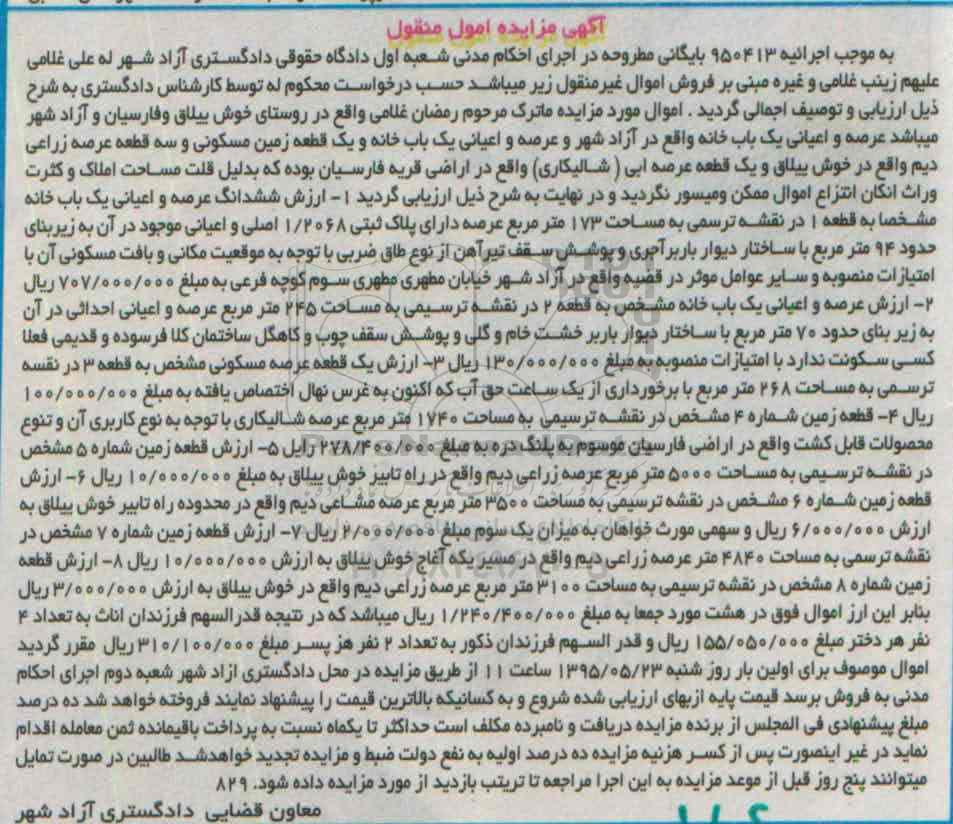 آگهی مزایده امول منقول
به موجب اجرائیه ۹۵۰۴۱۳ بایگانی مطروحه در اجرای احکام مدنی شعبه اول دادگاه حقوقی دادگستری آزاد شهر له علی غلامی
علیهم زینب غلامی و غیره مبنی بر فروش اموال غیرمنقول زیر میباشد حسب درخواست محکوم له توسط کارشناس دادگستری به شرح
ذیل ارزیابی و توصیف اجمالی گردید . اموال مورد مزایده ماترک مرحوم رمضان غلامی واقع در روستای خوش ییلاق وفارسیان و آزاد شهر
میباشد عرصه و اعیانی یک باب خانه واقع در آزاد شهر و عرصه و اعیانی یک باب خانه و یک قطعه زمین مسکونی و سه قطعه عرصه زراعی
دیم واقع در خوش ییلاق و یک قطعه عرصه ابی ( شالیکاری) واقع در اراضی قریه فارسیان بوده که بدلیل قلت مساحت املاک و کثرت
وراث انکان انتزاع اموال ممکن ومیسور نگردید و در نهایت به شرح ذیل ارزیابی گردید ۱- ارزش ششدانگ عرصه و اعیانی یک باب خانه
مشخصا به قطعه ۱ در نقشه ترسمی به مساحت ۱۷۳ متر مربع عرصه دارای پلاک ثبتی ۱/۲۰۶۸ اصلی و اعیانی موجود در آن به زیربنای
حدود ۹۴ متر مربع با ساختار دیوار باربر آجری و پوشش سقف تیرآهن از نوع طاق ضربی با توجه به موقعیت مکانی و بافت مسکونی آن با
امتیازات منصوبه و سایر عوامل موثر در قضیه واقع در آزاد شهر خیابان مطهری مطهری سوم کوچه فرعی به مبلغ ۷۰۷/۰۰۰/۰۰۰ ریال
۲- ارزش عرصه و اعیانی یک باب خانه مشخص به قطعه ۲ در نقشه ترسیمی به مساحت ۲۴۵ متر مربع عرصه و اعیانی احداثی در آن
به زیر بنای حدود ۷۰ متر مربع با ساختار دیوار باربر خشت خام و گلی و پوشش سقف چوب و کاهگل ساختمان کلا فرسوده و قدیمی فعلا
کسی سکونت ندارد با امتیازات منصوبه به مبلغ ۱۳۰/۰۰۰/۰۰۰ ریال ۳- ارزش یک قطعه عرصه مسکونی مشخص به قطعه ۳ در نقسه
ترسمی به مساحت ۲۶۸ متر مربع با برخورداری از یک ساعت حق آب که اکنون به غرس نهال اختصاص یافته به مبلغ ۱۰۰/۰۰۰/۰۰۰
ریال ۴- قطعه زمین شماره ۴ مشخص در نقشه ترسیمی به مساحت ۱۷۴۰ متر مربع عرصه شالیکاری با توجه به نوع کاربری آن و تنوع
محصولات قابل کشت واقع در اراضی فارسیان موسوم به پلنگ دره به مبلغ ۲۷۸/۴۰۰/۰۰۰ رایل ۵- ارزش قطعه زمین شماره ۵ مشخص
در نقشه ترسیمی به مساحت ۵۰۰۰ متر مربع عرصه زراعی دیم واقع در راه تابیر خوش ییلاق به مبلغ ۱۰/۰۰۰/۰۰۰ ریال ۶- ارزش
قطعه زمین شماره ۶ مشخص در نقشه ترسیمی به مساحت ۳۵۰۰ متر مربع عرصه مشاعی دیم واقع در محدوده راه تابیر خوش ییلاق به
ارزش ۶/۰۰۰/۰۰۰ ریال و سهمی مورث خواهان به میزان یک سوم مبلغ ۲/۰۰۰/۰۰۰ ریال ۷- ارزش قطعه زمین شماره ۷ مشخص در
نقشه ترسمی به مساحت ۴۸۴۰ متر عرصه زراعی دیم واقع در مسیر یکه آغاج خوش ییلاق به ارزش ۱۰/۰۰۰/۰۰۰ ریال ۸- ارزش قطعه
زمین شماره ۸ مشخص در نقشه ترسیمی به مساحت ۳۱۰۰ متر مربع عرصه زراعی دیم واقع در خوش ییلاق به ارزش ۳/۰۰۰/۰۰۰ ریال
بنابر این ارز اموال فوق در هشت مورد جمعا به مبلغ ۱/۲۴۰/۴۰۰/۰۰۰ ریال میباشد که در نتیجه قدرالسهم فرزندان اناث به تعداد ۴
نفر هر دختر مبلغ ۱۵۵/۰۵۰/۰۰۰ ریال و قدر السهم فرزندان ذکور به تعداد ۲ نفر هز پسر مبلغ ۳۱۰/۱۰۰/۰۰۰ ریال مقرر گردید
اموال موصوف برای اولین بار روز شنبه ۱۳۹۵/۰۵/۲۳ ساعت ۱۱ از طریق مزایده در محل دادگستری ازاد شهر شعبه دوم اجرای احکام
مدنی به فروش برسد قیمت پایه ازبهای ارزیابی شده شروع و به کسانیکه بالاترین قیمت را پیشنهاد نمایند فروخته خواهد شد ده درصد
مبلغ پیشنهادی فی المجلس از برنده مزایده دریافت و نامبرده مکلف است حداکثر تا یکماه نسبت به پرداخت باقیمانده ثمن معامله اقدام
نماید در غیر اینصورت پس از کسر هزنیه مزایده ده درصد اولیه به نفع دولت ضبط و مزایده تجدید خواهدشد طالبین در صورت تمایل
میتوانند پنج روز قبل از موعد مزایده به این اجرا مراجعه تا تریتب بازدید از مورد مزایده داده شود. ۸۲۹
معاون قضایی دادگستری آزاد شهر